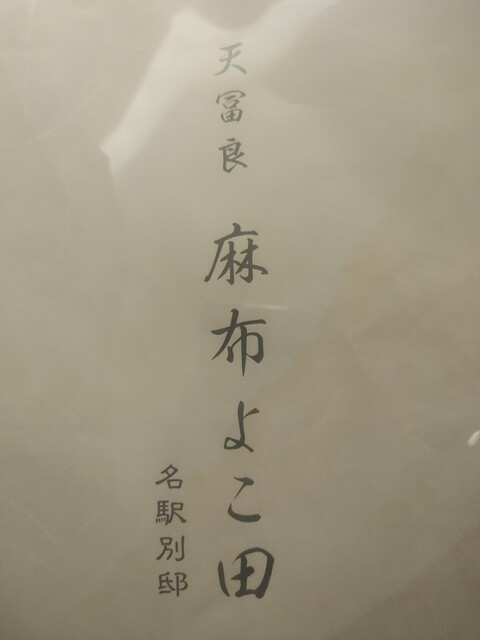 天冨良 麻布よこ田
名駅別邸